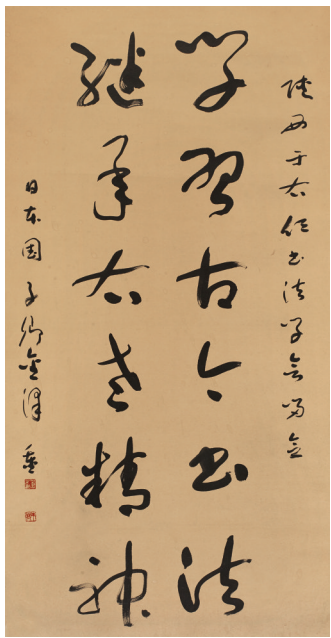 陕西于右任书法学会留念
学習古今书法
継承右老精神
日本国子卿金泽